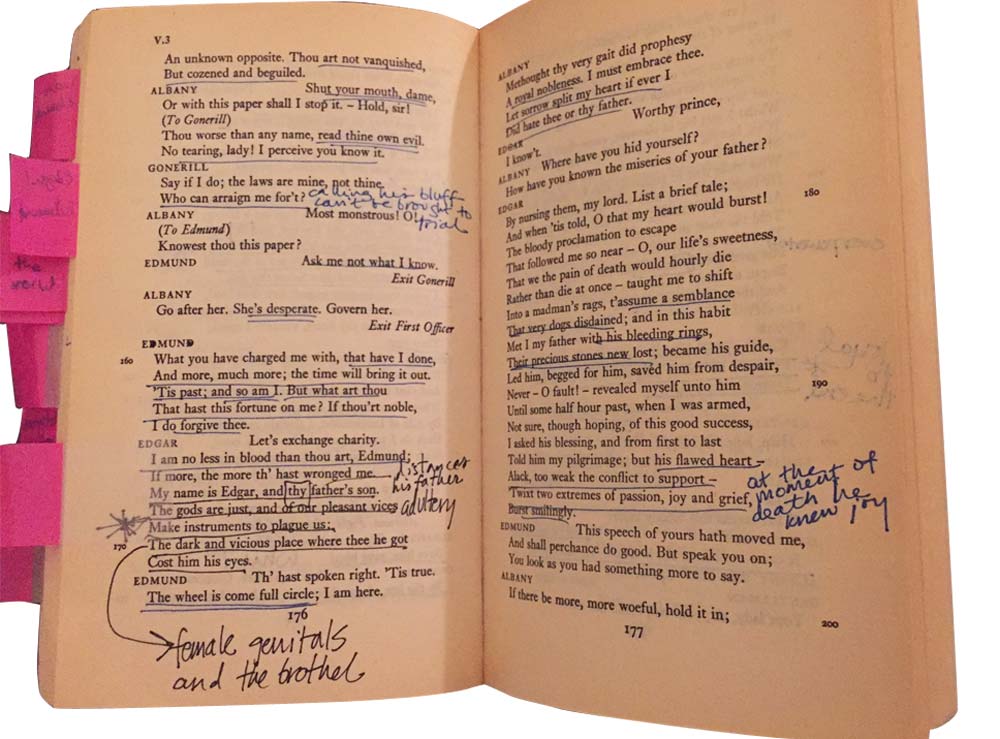 V.3
An unknown opposite. Thou art not vanquished,
But cozened and beguiled.
ALBANY Shut your mouth, dame,
Or with this paper shall I stop it. – Hold, sir!
(To Gonerill)
Thou worse than any name, read thine own evil.
No tearing, lady! I perceive you know it.
GONERILL
Say if I do; the laws are mine, not thine.
Who can arraign me for't? calling his bluff
can't be brought to
trial
ALBANY Most monstrous! O!
(To Edmund)
Knowest thou this paper?
EDMUND Ask me not what I know.
Exit Gonerill
ALBANY
Go after her. She's desperate. Govern her.
Exit First Officer
EDMUND
160 What you have charged me with, that have I done,
And more, much more; the time will bring it out.
'Tis past; and so am I. But what art thou
That hast this fortune on me? If thou'rt noble,
I do forgive thee.
EDGAR Let's exchange charity.
I am no less in blood than thou art, Edmund;
If more, the more th' hast wronged me. distances
My name is Edgar, and thy father's son. his father
The gods are just, and of our pleasant vices adultery
Make instruments to plague us:
170 The dark and vicious place where thee he got
Cost him his eyes.
EDMUND Th' hast spoken right. 'Tis true.
The wheel is come full circle; I am here.
176
female genitals
and the brothel
the
world
ALBANY
Methought thy very gait did prophesy
A royal nobleness. I must embrace thee.
Let sorrow split my heart if ever I
Did hate thee or thy father.
Worthy prince,
EDGAR
I know't.
ALBANY Where have you hid yourself?
How have you known the miseries of your father?
EDGAR
By nursing them, my lord. List a brief tale; 180
And when 'tis told, O that my heart would burst!
The bloody proclamation to escape
That followed me so near – O, our life's sweetness,
That we the pain of death would hourly die
Rather than die at once – taught me to shift
Into a madman's rags, t'assume a semblance
That very dogs disdained; and in this habit
Met I my father with his bleeding rings,
Their precious stones new lost; became his guide,
Led him, begged for him, saved him from despair,
Never – O fault! – revealed myself unto him 190
Until some half hour past, when I was armed,
Not sure, though hoping, of this good success,
I asked his blessing, and from first to last
Told him my pilgrimage; but his flawed heart –
Alack, too weak the conflict to support –
'Twixt two extremes of passion, joy and grief,
Burst smilingly.
at the
moment of
death he
knew joy
EDMUND This speech of yours hath moved me,
And shall perchance do good. But speak you on;
You look as you had something more to say.
ALBANY
If there be more, more woeful, hold it in; 200
177